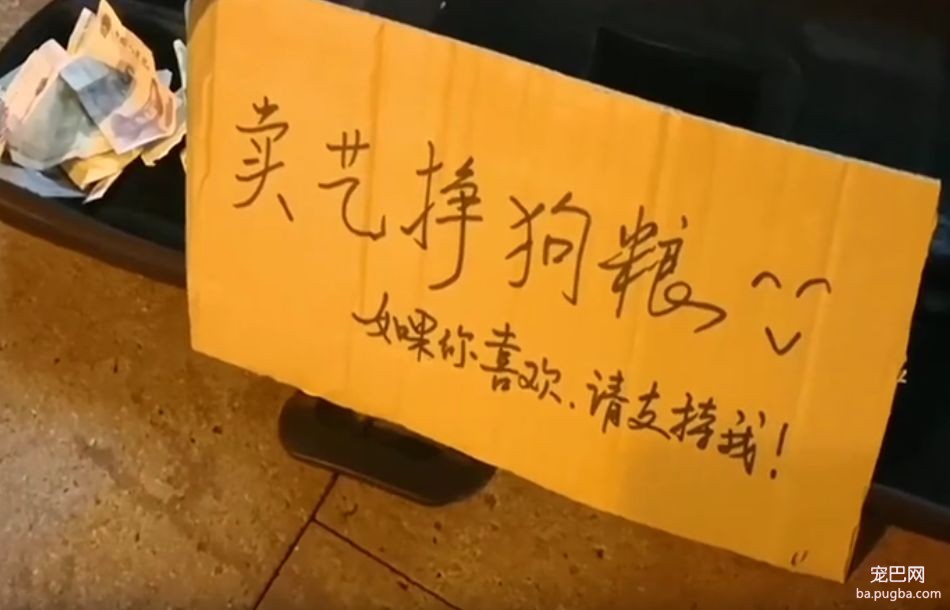 卖艺挣狗粮
如果你喜欢、请支持我!
宠巴网
ba.pugba.com